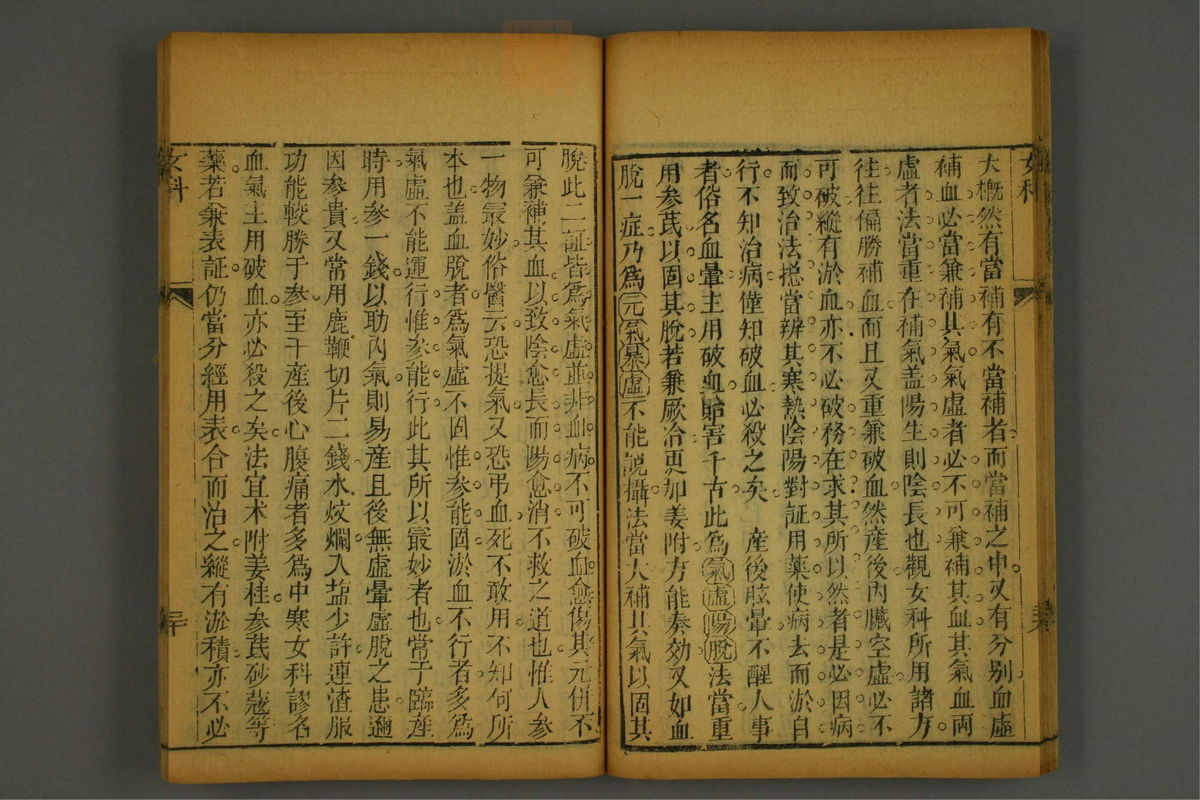 女科
大槪然有當補有不當補者而當補之中又有分别血虛
補血必當兼補其氣氣虛者必不可兼補其血其氣血兩
虛者法當重在補氣盖陽生則陰長也觀女科所用諸方
往往偏勝補血而且又重兼破血然産後內臟空虛必不
可破縱有淤血亦不必破務在求其所以然者是必因病
而致治法揔當辨其寒熱陰陽對証用藥使病去而淤自
行不知治病僅知破血必殺之矣 産後眩暈不醒人事
者俗名血暈主用破血貽害千古此爲氣虛陽脫法當重
用參芪以固其脫若兼厥冷更加姜附方能奏効又如血
脫一症乃爲元氣暴虛不能說攝法當大補其氣以固其
脫此二証皆爲氣虛並非血病不可破血愈傷其元併不
可兼補其血以致陰愈長而陽愈消不救之道也惟人參
一物最妙俗醫云恐提氣又恐弔血死不敢用不知何所
本也盖血脫者爲氣虛不固惟參能固淤血不行者多爲
氣虛不能運行惟參能行此其所以最妙者也常于臨産
時用參一錢以助內氣則易産且後無虛暈虛脫之患邇
因參貴又常用鹿鞭切片二錢水炆爛入盐少許連渣服
功能較勝于參至于産後心腹痛者多爲中寒女科謬名
血氣主用破血亦必殺之矣法宜术附姜桂參芪砂蔻等
藥若兼表証仍當分經用表合而治之縱有淤積亦不必
女科